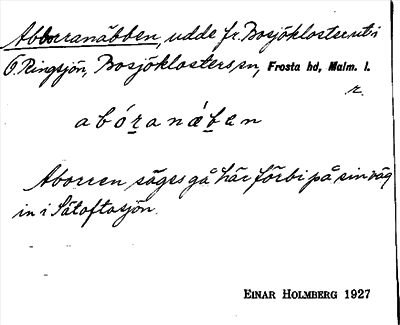 Abborranäbben, udde fr. Bosjökloster ut i
Ö. Ringsjön, Bosjöklosters sn, Frosta hd, Malm. l.
r.
abóranǽben
Aborren säges gå här förbi på sin väg
in i Sätoftasjön.
EINAR HOLMBERG 1927